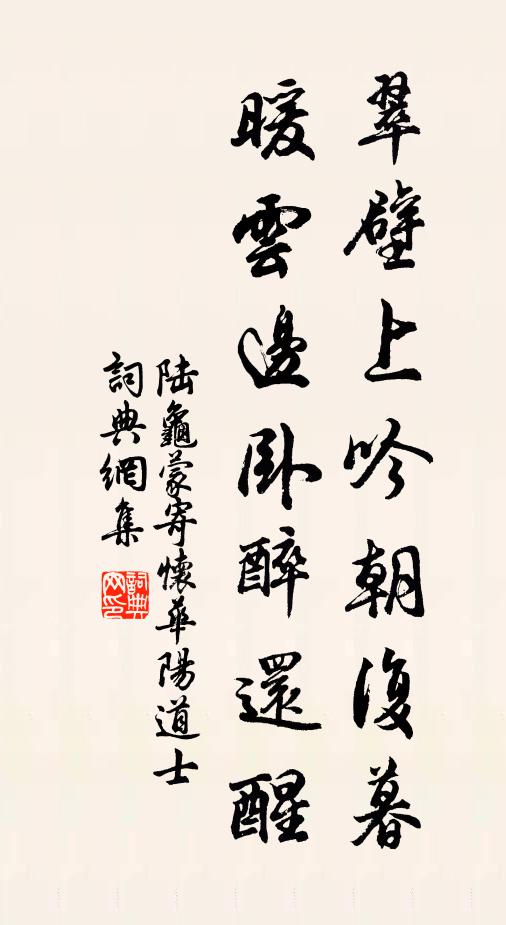 翠壁上吟朝復暮
暖雲邊卧醉還醒
陆龜蒙寄懷華陽道士
詞典網集
詞典网印